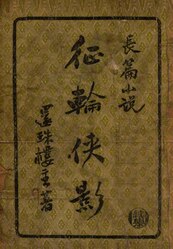 長篇小説
征輪俠影
還珠樓主著